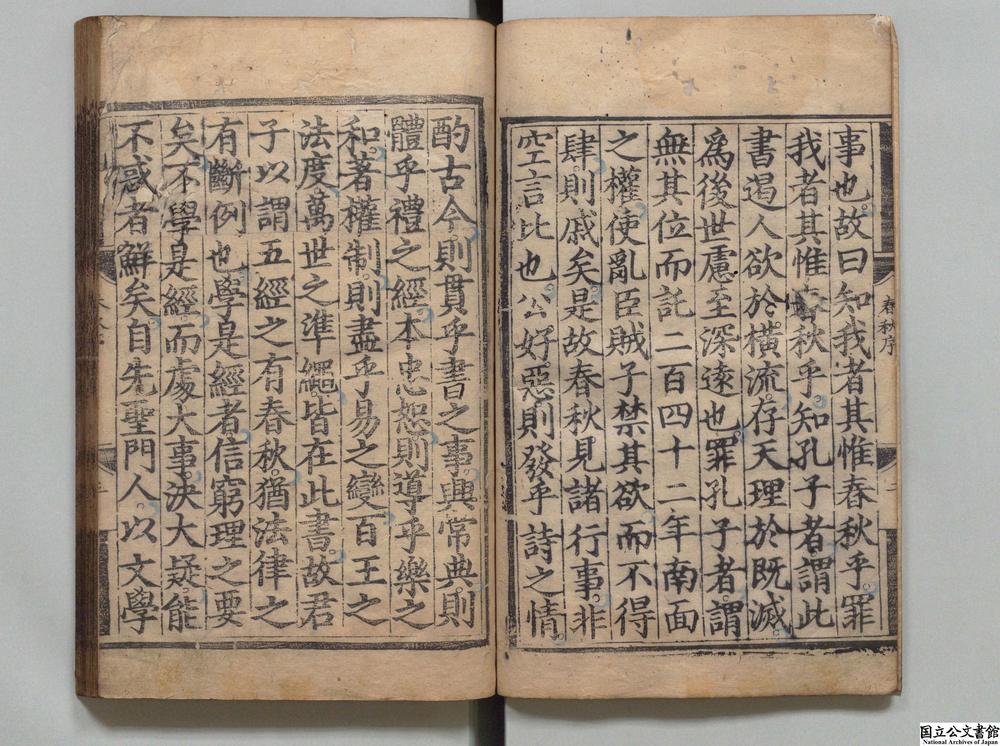 春秋序
二
事也。故曰知我者其惟春秋乎。罪
我者其惟春秋乎。知孔子者。謂此
書遏人欲於橫流。存天理於既滅。
爲後世慮至深遠也。罪孔子者。謂
無其位而託二百四十二年南面
之權。使亂臣賊子禁其欲而不得
肆。則戚矣。是故春秋見諸行事。非
空言比也。公好惡。則發乎詩之情。
酌古今。則貫乎書之事。興常典。則
體乎禮之經。本忠恕。則導乎樂之
和。著權制。則盡乎易之變。百王之
法度。萬世之準繩。皆在此書。故君
子以謂五經之有春秋。猶法律之
有斷例也。學是經者。信窮理之要
矣。不學是經。而處大事。決大疑。能
不惑者鮮矣。自先聖門人。以文學
国立公文書館
National Archives of Japan